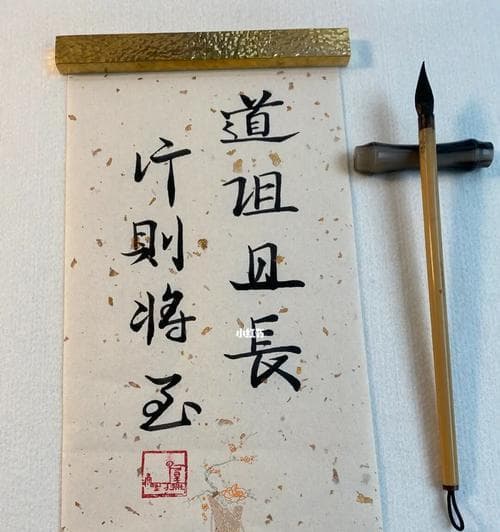 道阻且長
行則將至
小红书